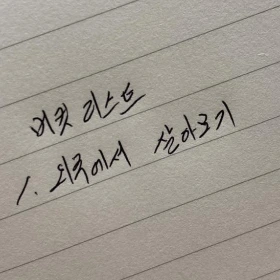 버킷 리스트
1. 외국에서 살아보기